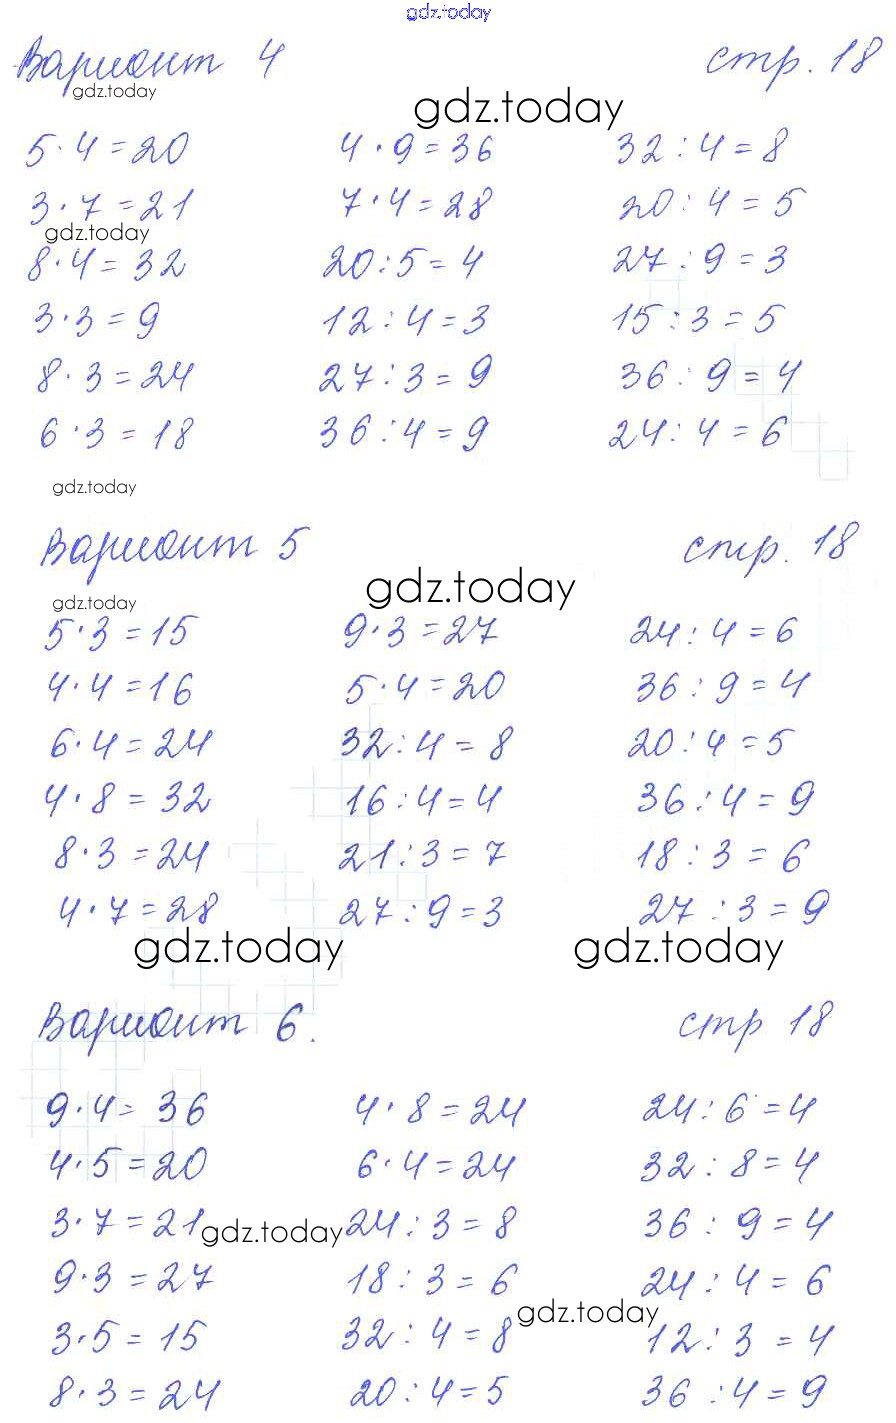 gdz.today
Вариант 4 стр. 18
gdz.today
gdz.today
5·4=20 4·9=36 32:4=8
3·7=21 7·4=28 20:4=5
gdz.today
8·4=32 20:5=4 27:9=3
3·3=9 12:4=3 15:3=5
8·3=24 27:3=9 36:9=4
6·3=18 36:4=9 24:4=6
gdz.today
Вариант 5 стр. 18
gdz.today
gdz.today
5·3=15 9·3=27 24:4=6
4·4=16 5·4=20 36:9=4
6·4=24 32:4=8 20:4=5
4·8=32 16:4=4 36:4=9
8·3=24 21:3=7 18:3=6
4·7=28 27:9=3 27:3=9
gdz.today gdz.today
Вариант 6. стр 18
9·4=36 4·8=24 24:6=4
4·5=20 6·4=24 32:8=4
3·7=21 gdz.today 24:3=8 36:9=4
9·3=27 18:3=6 24:4=6
gdz.today
3·5=15 32:4=8 12:3=4
8·3=24 20:4=5 36:4=9